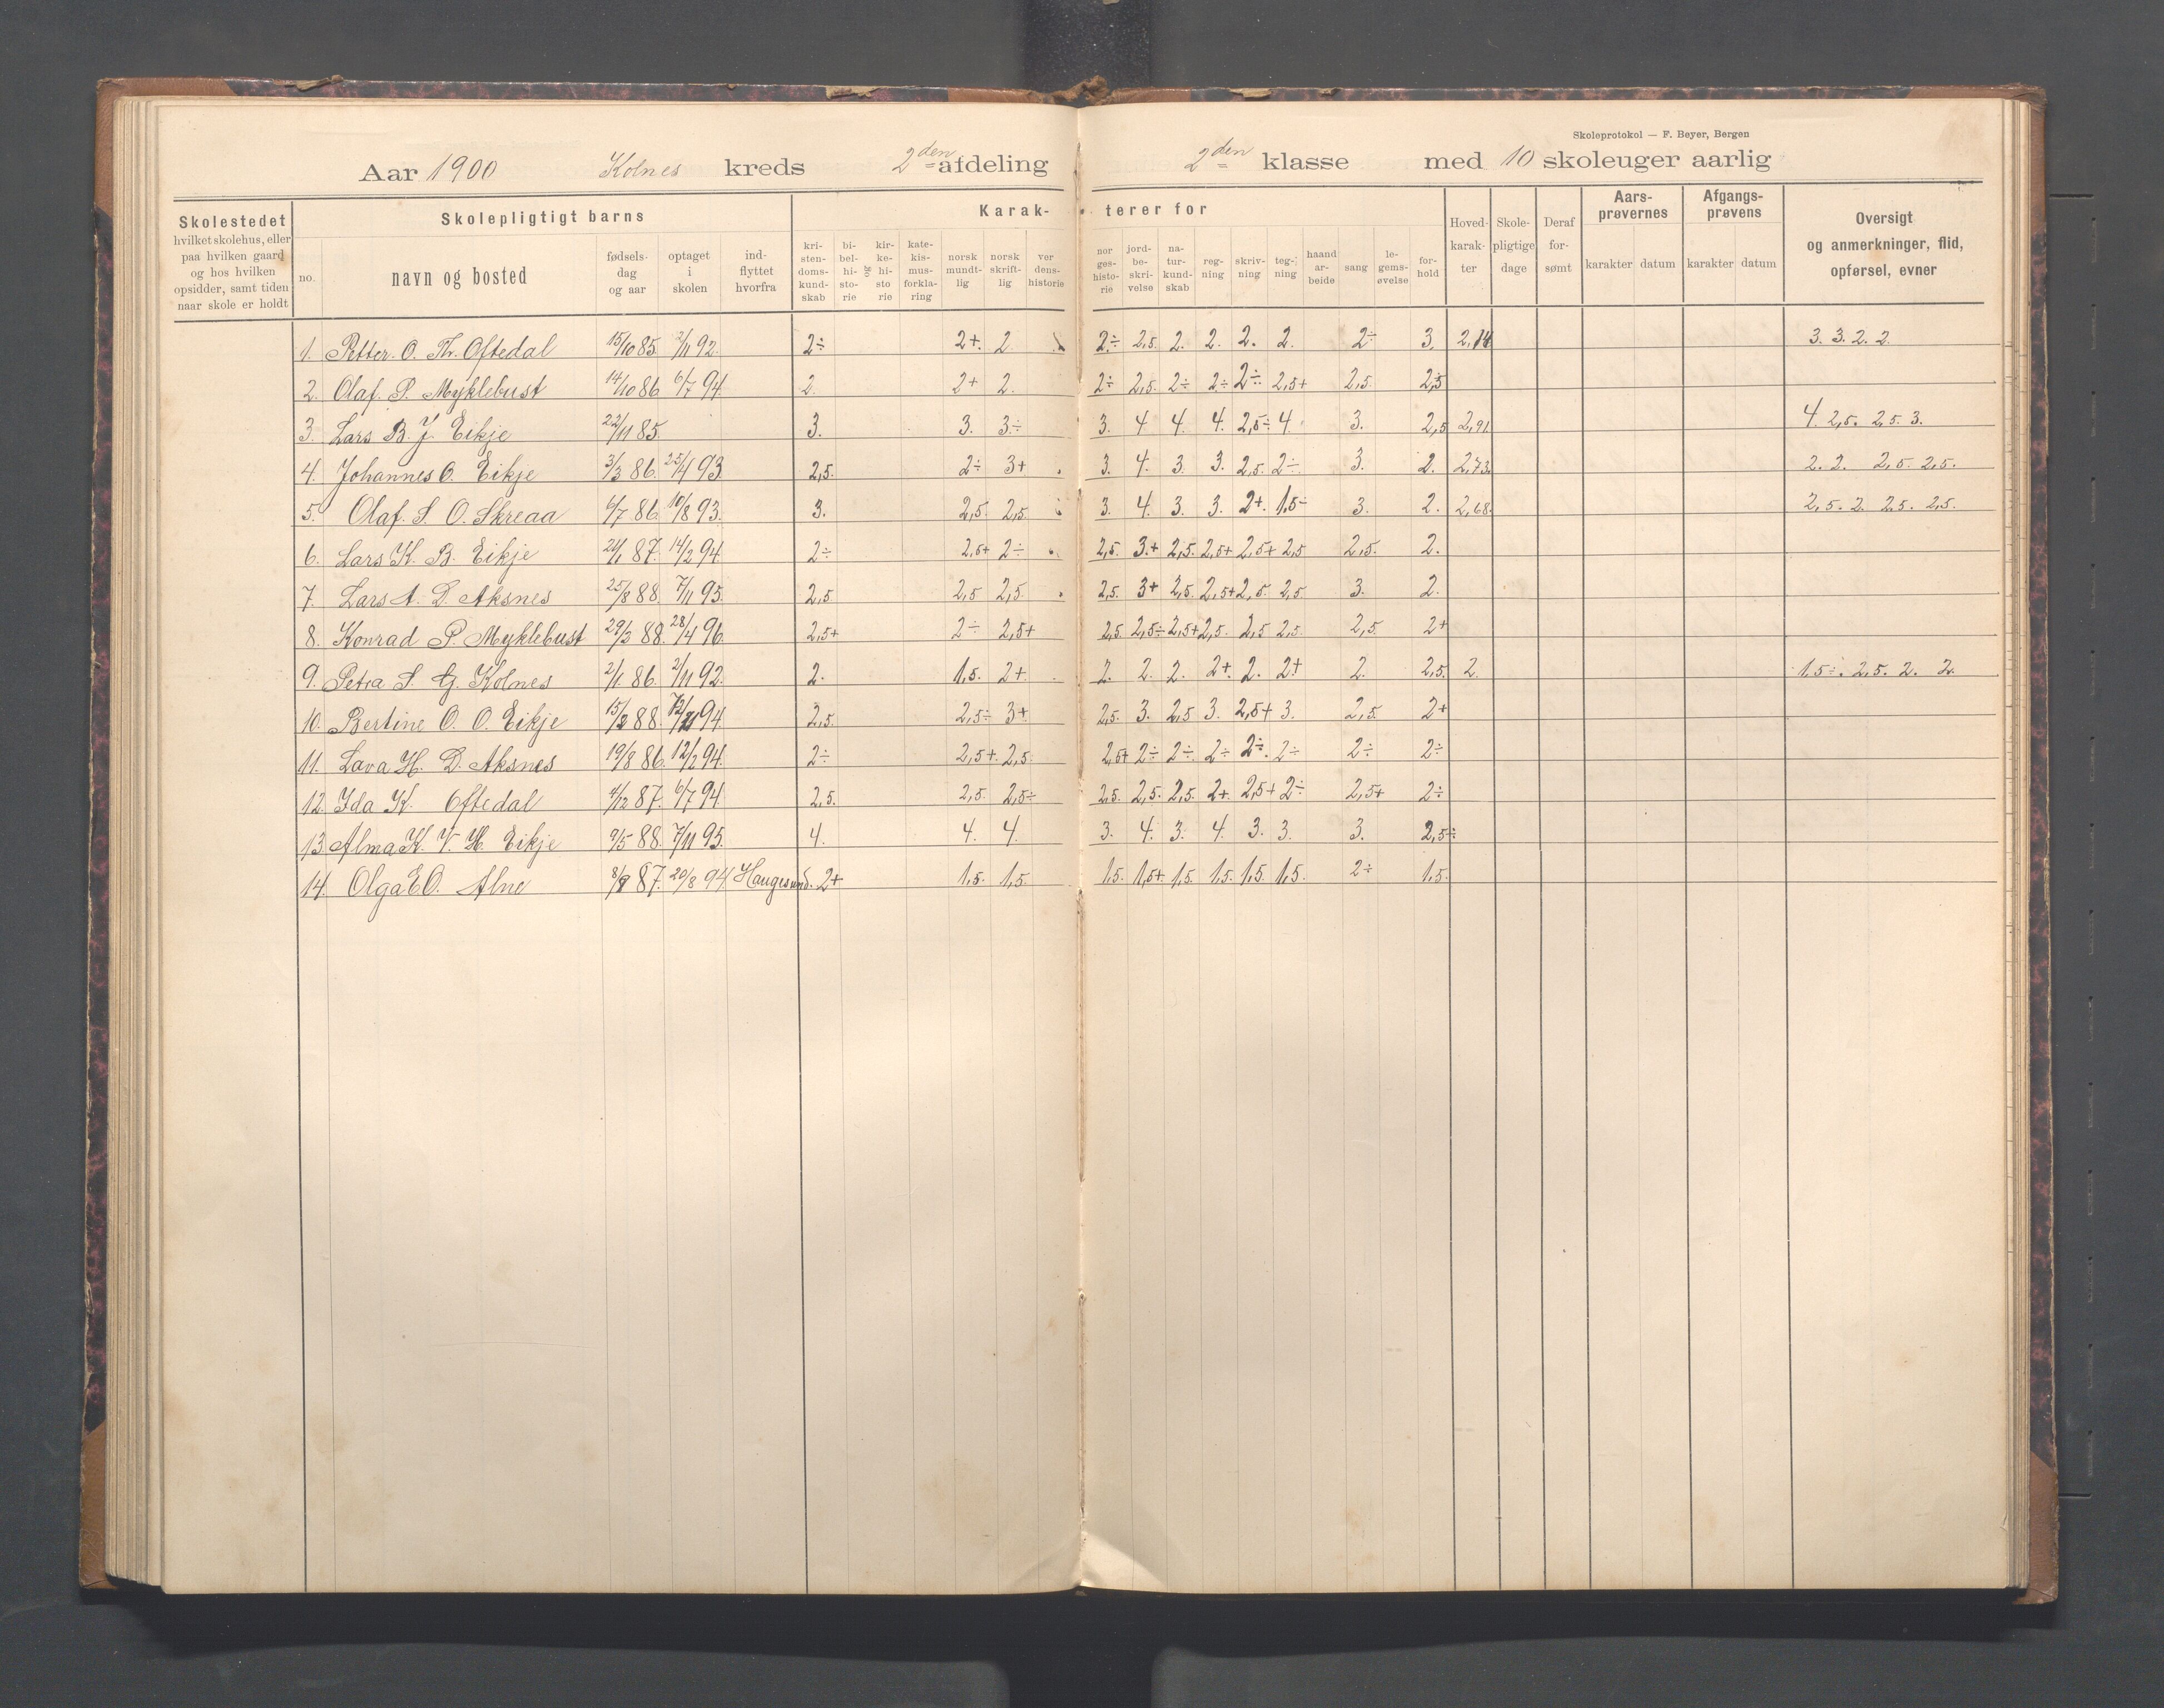 Skoleprotokol — F. Beyer, Bergen
Aar 1900 Kolnes kreds 2den afdeling 2den klasse med 10 skoleuger aarlig
Skolestedet hvilket skolehus, eller paa hvilken gaard og hos hvilken opsidder, samt tiden naar skole er holdt
Skolepligtigt barns
no. navn og bosted fødsels-dag og aar optaget i skolen ind-flyttet hvorfra
Karak- terer for
kri-sten-doms-kund-skab bi-bel-hi-sto-rie og kir-ke-hi-sto rie kate-kis-mus-forkla-ring norsk mundt-lig norsk skrift-lig ver dens-historie
nor ges-histo-rie jord-be-skri-velse na-tur-kund-skab reg-ning skriv-ning teg-ning haand ar-beide sang le-gems-øvelse for-hold
Hoved-karak-ter Skole-pligtige dage Deraf for-sømt
Aars-prøvernes karakter datum
Afgangs-prøvens karakter datum
Oversigt og anmerkninger, flid, opførsel, evner
1. Petter. O. Th. Oftedal 15/10 85. 2/11 92. 2÷ 2+. 2. 2÷ 2,5. 2. 2. 2. 2. 2÷ 3. 2,14 3. 3. 2. 2.
2. Olaf. P. Myklebust 14/10 86 6/7 94. 2. 2+ 2. 2÷ 2,5. 2÷ 2÷ 2÷ 2,5+ 2,5. 2,5
3. Lars B. J. Eikje 22/11 85. 3. 3. 3÷ 3. 4 4. 4. 2,5÷ 4. 3. 2,5 2,91. 4. 2,5. 2,5. 3.
4. Johannes O. Eikje 3/3 86. 25/4 93. 2,5. 2÷ 3+ 3. 4. 3. 3. 2,5. 2÷ 3. 2. 2,73. 2. 2. 2,5. 2,5.
5. Olaf. S. O. Skreaa 6/7 86. 10/8 93. 3. 2,5. 2,5. 3. 4. 3. 3. 2+. 1,5÷ 3. 2. 2,68. 2,5. 2. 2,5. 2,5.
6. Lars K. B. Eikje 21/1 87. 14/2 94. 2÷ 2,5+ 2÷ 2,5. 3.+ 2,5. 2,5+ 2,5+ 2,5 2,5. 2.
7. Lars A. D. Aksnes 25/8 88. 7/11 95. 2,5 2,5 2,5. 2,5. 3+ 2,5. 2,5+ 2,5. 2,5 3. 2.
8. Konrad P. Myklebust 29/3 88. 28/4 96. 2,5+ 2÷ 2,5+ 2,5. 2,5÷ 2,5+ 2,5. 2,5 2,5. 2,5. 2+
9. Petra S. G. Kolnes 2/1. 86. 2/11 92. 2. 1,5. 2+. 2. 2. 2. 2+. 2. 2+ 2. 2,5. 2. 1,5÷. 2,5. 2. 2.
10. Bertine O. O. Eikje 15/2 88. 94. 2,5. 2,5÷ 3+. 2,5. 3. 2,5 3. 2,5+ 3. 2,5. 2+
11. Lava H. D. Aksnes 19/8 86. 12/2 94. 2÷ 2,5+. 2,5. 2,5+ 2÷ 2÷ 2÷ 2÷. 2÷ 2÷ 2÷
12. Ida K. Oftedal 4/12 87. 6/7 94. 2,5. 2,5. 2,5÷ 2,5. 2,5. 2,5. 2+. 2,5+ 2÷ 2,5+ 2÷
13. Alma K. V. H. Eikje 9/5 88. 7/11 95. 4. 4. 4. 3. 4. 3. 4. 3. 3. 3. 2,5÷
14. Olga E O. Alne 8/9 87. 20/8 94. Haugesund. 2+ 1,5. 1,5. 1,5. 1,5+. 1,5. 1,5. 1,5. 1,5. 2÷ 1,5.